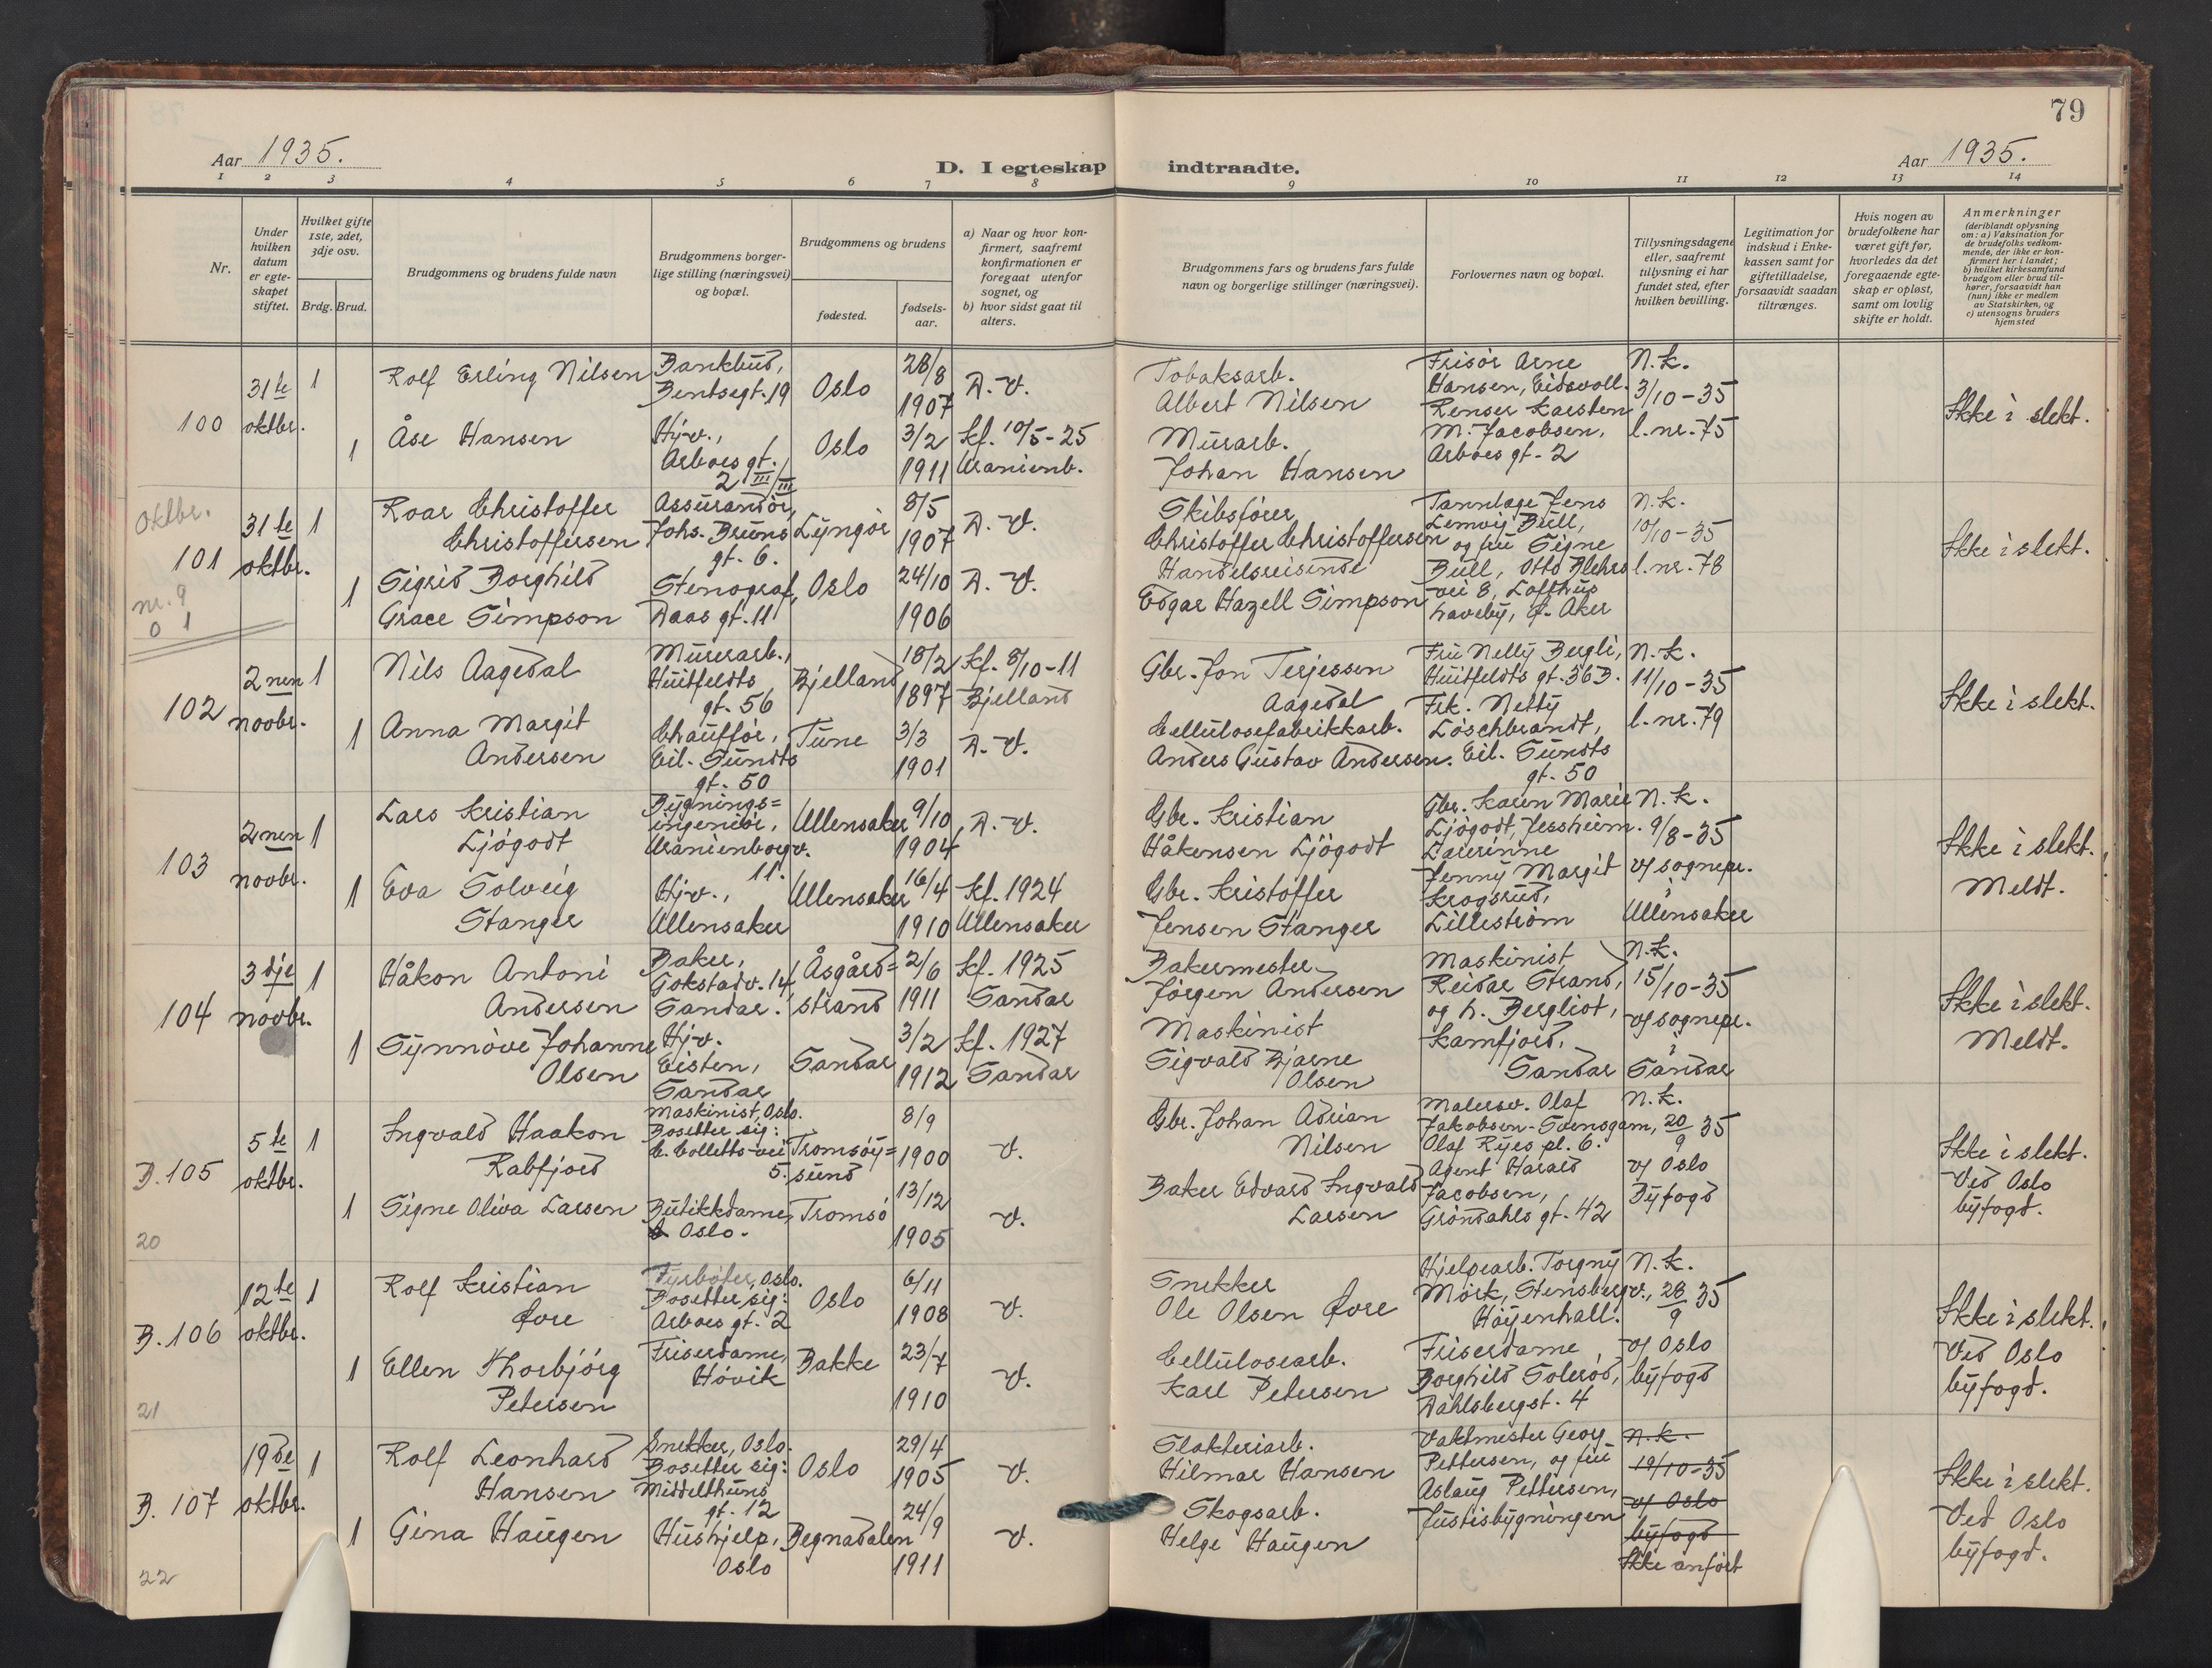 79
Aar 1935.
D. I egteskap indtraadte.
Aar 1935.
1 2 3 4 5 6 7 8 9 10 11 12 13 14
Nr.
Under
hvilken
datum
er egte-
skapet
stiftet.
Hvilket gifte
1ste, 2det,
3dje osv.
Brdg. Brud.
Brudgommens og brudens fulde navn
Brudgommens borger-
lige stilling (næringsvei)
og bopæl.
Brudgommens og brudens
fødested.
fødsels-
aar.
a) Naar og hvor kon-
firmert, saafremt
konfirmationen er
foregaat utenfor
sognet, og
b) hvor sidst gaat til
alters.
Brudgommens fars og brudens fars fulde
navn og borgerlige stillinger (næringsvei).
Forlovernes navn og bopæl.
Tillysningsdagene
eller, saafremt
tillysning ei har
fundet sted, efter
hvilken bevilling.
Legitimation for
indskud i Enke-
kassen samt for
giftetilladelse,
forsaavidt saadan
tiltrænges.
Hvis nogen av
brudefolkene har
været gift før,
hvorledes da det
foregaaende egte-
skap er opløst,
samt om lovlig
skifte er holdt.
Anmerkninger
(deriblandt oplysning
om: a) Vaksination for
de brudefolks vedkom-
mende, der ikke er kon-
firmert her i landet;
b) hvilket kirkesamfund
brudgom eller brud til-
hører, forsaavidt han
(hun) ikke er medlem
av Statskirken, og
c) utensogns bruders
hjemsted
100
31te
oktbr.
1
Rolf Erling Nilsen
Bankbud,
Bentsegt. 19
Oslo
28/8
1907
D. V.
1
Åse Hansen
Hjv.,
Arboes gt.
2 III/III
Oslo
3/2
1911
Kf. 10/5-25
Uranienb.
Tobaksarb.
Albert Nilsen
Murarb.
Johan Hansen
Frisør Arne
Hansen, Eidsvoll.
Renser Karsten
M. Jacobsen,
Arboes gt. 2
N.K.
3/10-35
l.nr. 75
Ikke i slekt.
oktbr.
101
nr. 9
0 1
31te
oktbr.
1
Roar Christoffer
Christoffersen
Assurandör,
Johs. Bruns
gt. 6.
Lyngör
8/5
1907
D. V.
1
Sigrid Borghild
Grace Simpson
Stenograf,
Daas gt. 11
Oslo
24/10
1906
D. V.
Skibsfører
Christoffer Christoffersen
Handelsreisende
Edgar Hazell Simpson
Tannlæge Jens
Lemvig Bull,
og fru Signe
Bull, Otto Blehrs
vei 8, Lofthus
haveby, Ø. Aker
N.K.
10/10-35
l.nr. 78
Ikke i slekt.
102
2nen
novbr.
1
Nils Aagedal
Murerarb.,
Huitfeldts
gt. 56
Bjelland
18/2
1897
Kf. 8/10-11
Bjelland
1
Anna Margit
Andersen
Chaufför,
Eil. Sundts
gt. 50
Tune
3/3
1901
D. V.
Gbr. Jon Terjessen
Aagedal
Cellulosefabrikkarb.
Anders Gustav Andersen.
Fru Nelly Bergli,
Huitfeldts gt. 36 B.
Frk. Netty
Löschbrandt,
Eil. Sundts
gt. 50
N.K.
11/10-35
l.nr. 79
Ikke i slekt.
103
2nen
novbr.
1
Lars Kristian
Ljögodt
Bygnings=
ingeniör,
Uranienborgv.
11.
Ullensaker
9/10
1904
D. V.
1
Eva Solveig
Stanger
Hjv.,
Ullensaker
Ullensaker
16/4
1910
Kf. 1924
Ullensaker
Gbr. Kristian
Håkensen Ljögodt
Gbr. Kristoffer
Jensen Stanger
Gbr. Karen Marie
Ljögodt, Jessheim.
Lærerinne
Jenny Margit
Krogsrud,
Lilleström
N.K.
9/8-35
v/ sognepr.
i
Ullensaker
Ikke i slekt.
Meldt.
104
3dje
novbr.
1
Håkon Antoni
Andersen
Baker,
Gokstadv. 14,
Sandar.
Åsgård=
strand
2/6
1911
Kf. 1925
Sandar
1
Synnöve Johanne
Olsen
Hjv.
Eisten,
Sandar
Sandar
3/2
1912
Kf. 1927
Sandar
Bakermester
Jörgen Andersen
Maskinist
Sigvald Bjarne
Olsen
Maskinist
Reidar Strand,
og h. Bergliot,
Kamfjord,
Sandar
N.K.
15/10-35
v/ sognepr.
i
Sandar
Ikke i slekt.
Meldt.
B. 105
20
5te
oktbr.
1
Ingvald Haakon
Rabfjord
Maskinist, Oslo.
Bosetter sig:
C. Colletts-vei
5.
Tromsöy=
sund
8/9
1900
V.
1
Signe Oliva Larsen
Butikkdame,
Oslo.
Tromsö
13/12
1905
V.
Gbr. Johan Adrian
Nilsen
Baker Edvard Ingvald
Larsen
Malersv. Olaf
Jakobsen-Svensgam,
Olaf Ryes pl. 6.
Agent Harald
Jacobsen,
Gröndahls gt. 42
N.K.
20/9 35
v/ Oslo
Byfogd
Ikke i slekt.
Ved Oslo
byfogd.
B. 106
21
12te
oktbr.
1
Rolf Kristian
Øore
Fyrböter, Oslo.
Bosetter sig:
Arboes gt. 2
Oslo
6/11
1908
V.
1
Ellen Thorbjörg
Petersen
Friserdame,
Hövik
Bakke
23/7
1910
V.
Snekker
Ole Olsen Øore
Cellulosearb.
Karl Petersen
Hjelpearb. Torgny
Mörk, Stensbergv.,
Höyenhall.
Friserdame
Borghild Solerød,
Dahlsbergst. 4
N.K.
28/9 35
v/ Oslo
byfogd
Ikke i slekt.
Ved Oslo
byfogd.
B. 107
22
19de
oktbr.
1
Rolf Leonhard
Hansen
Snekker, Oslo.
Bosetter sig:
Middelthuns
gt. 12
Oslo
29/4
1905
V.
1
Gina Haugen
Hushjelp,
Oslo
Begnadalen
24/9
1911
V.
Slakteriarb.
Hilmar Hansen
Skogsarb.
Helge Haugen
Vaktmester Georg
Pettersen, og fru
Aslaug Pettersen,
Justisbygningen
N.K.
19/10-35
v/ Oslo
byfogd
Ikke anfört
Ikke i slekt.
Ved Oslo
byfogd.